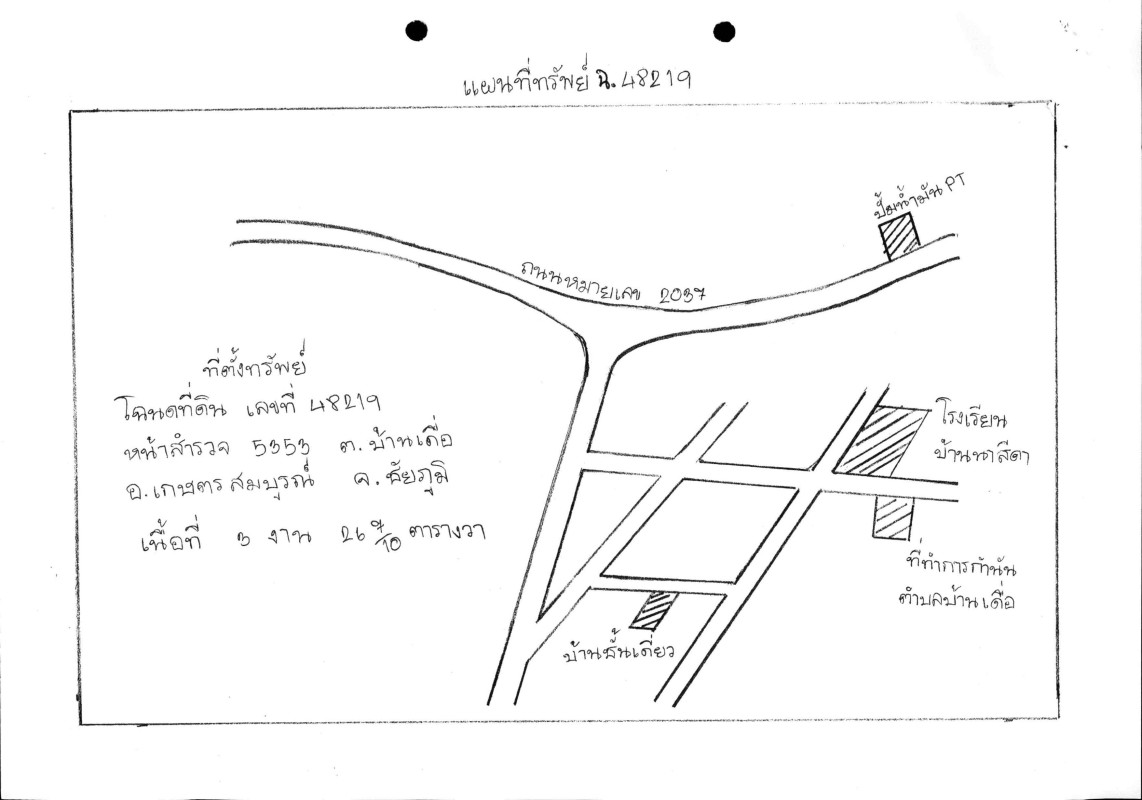 แผนที่ทรัพย์ ฉ.48219
ปั้มน้ำมัน PT
ถนนหมายเลข 2037
ที่ตั้งทรัพย์
โฉนดที่ดิน เลขที่ 48219
หน้าสำรวจ 5353 ต.บ้านเดื่อ
อ.เกษตรสมบูรณ์ จ.ชัยภูมิ
เนื้อที่ 3 งาน 26 7/10 ตารางวา
โรงเรียน
บ้านนาสีดา
ที่ทำการกำนัน
ตำบลบ้านเดื่อ
บ้านชั้นเดี่ยว